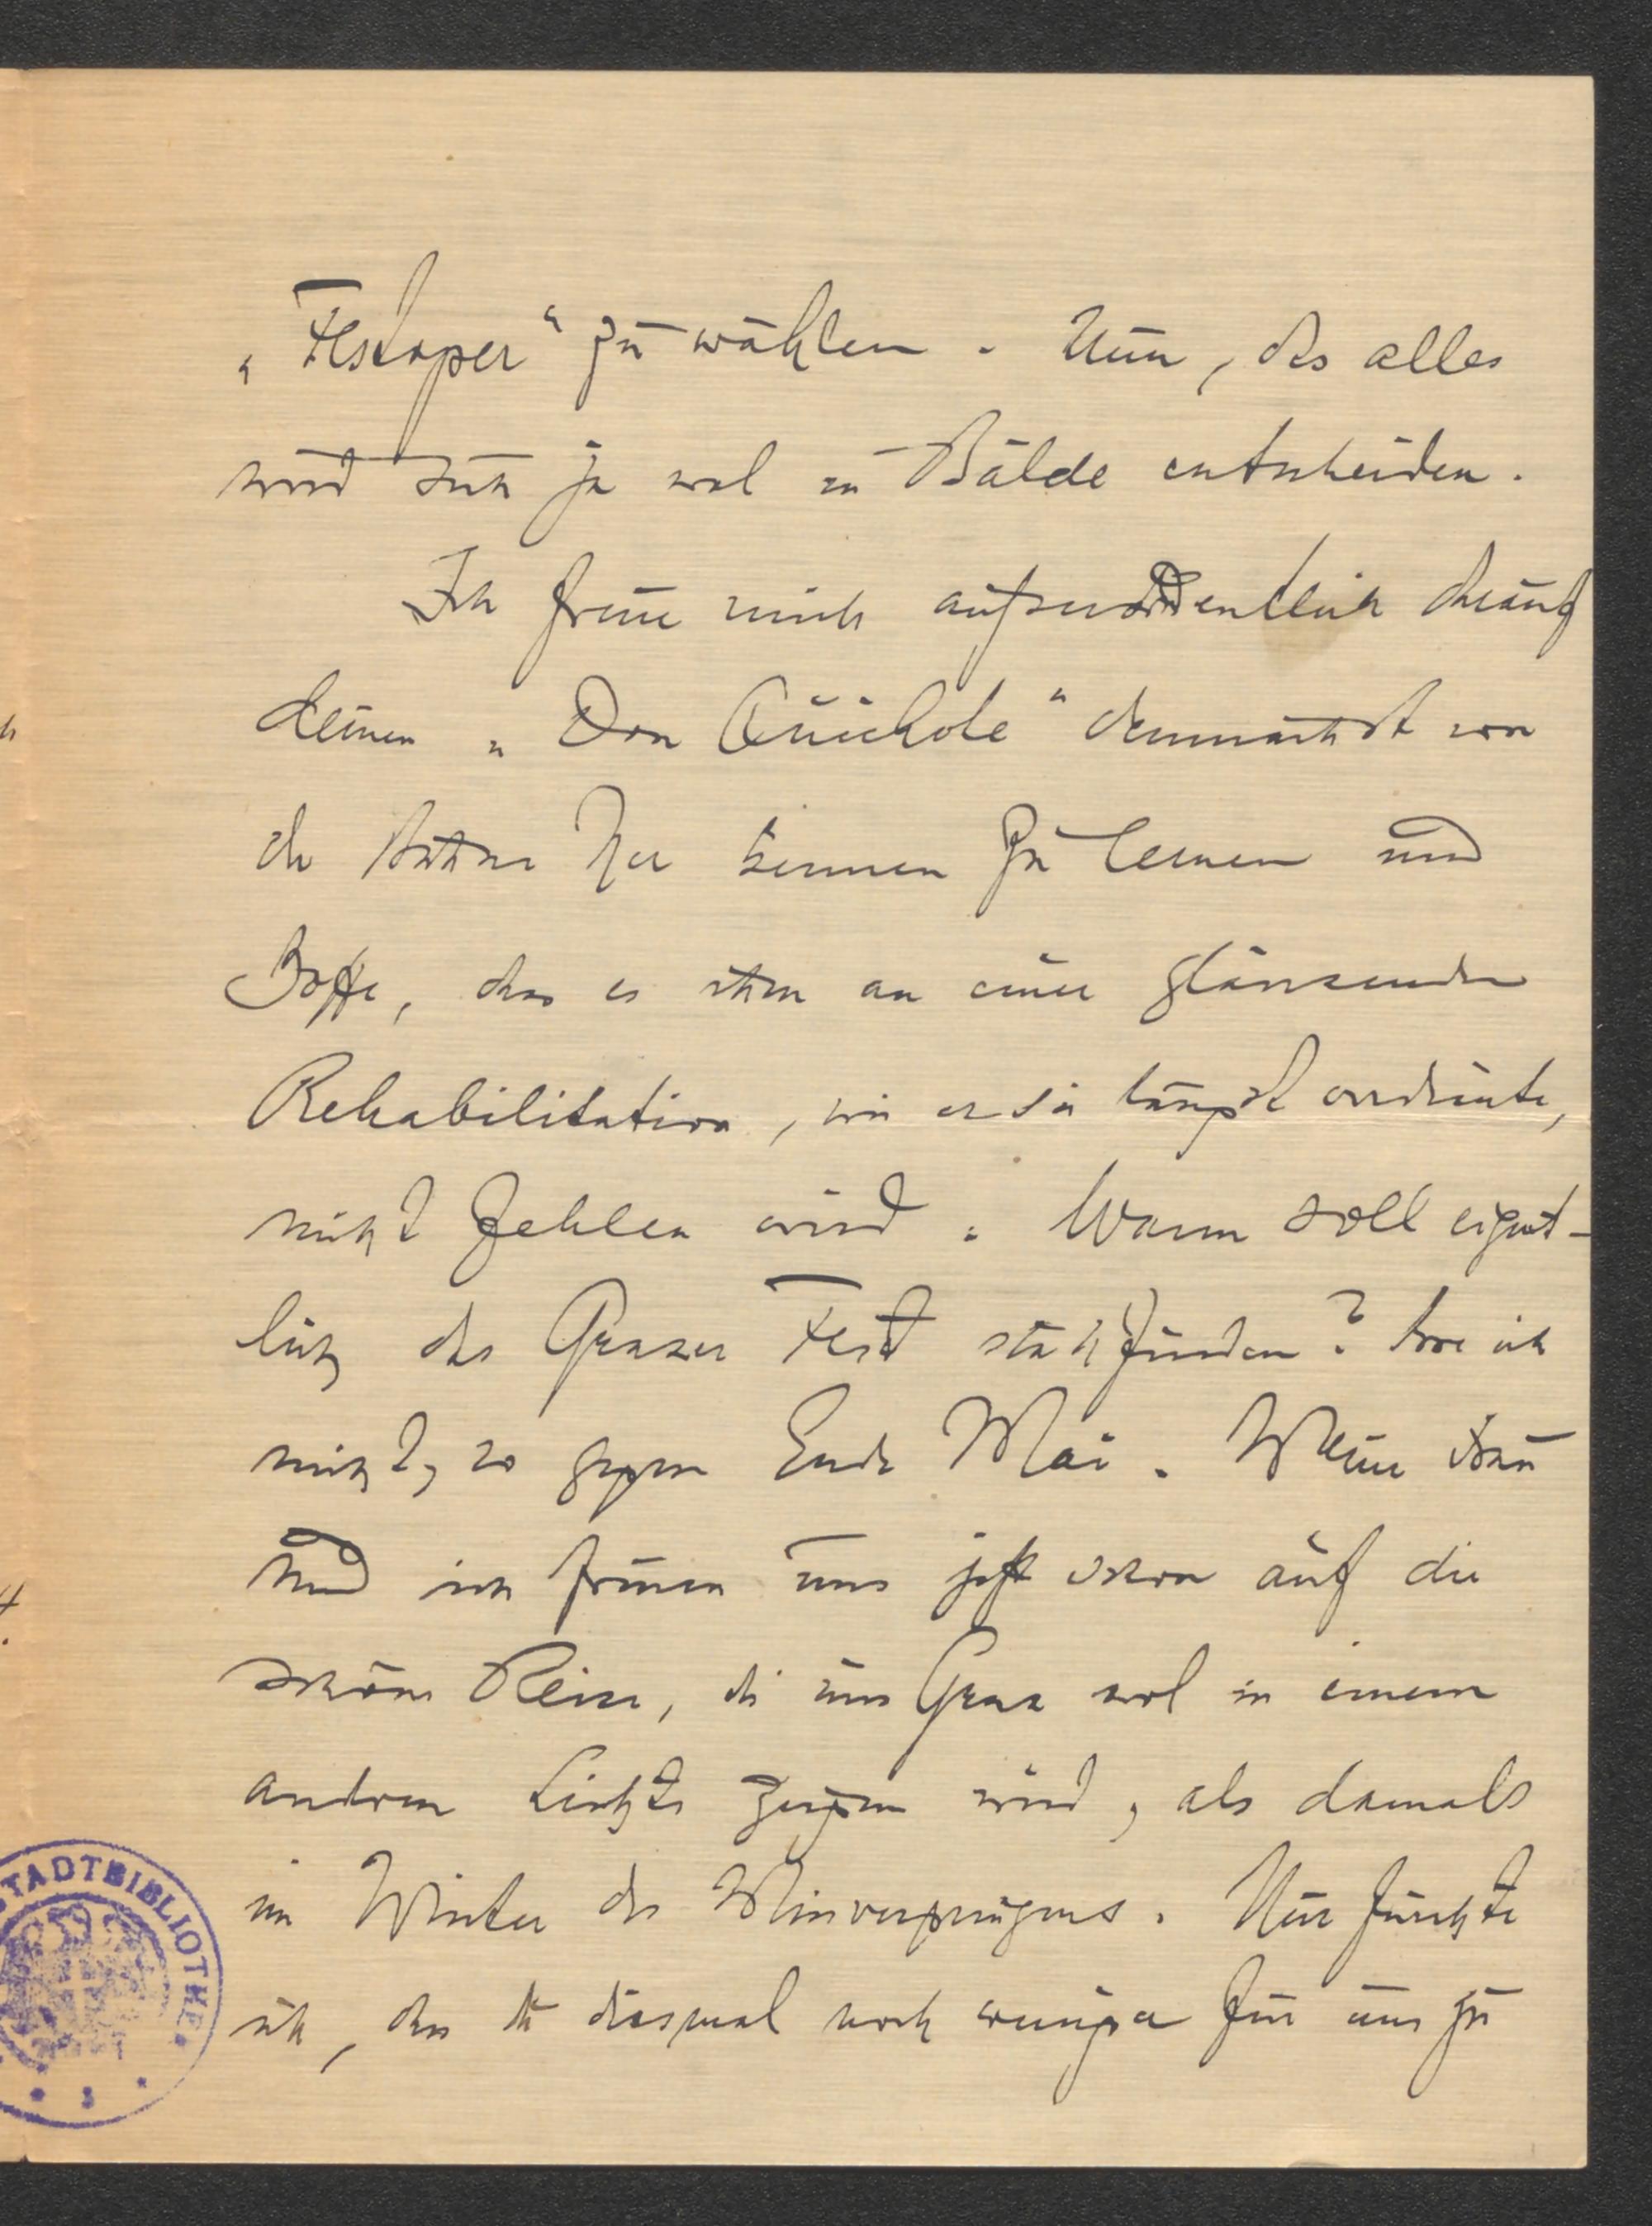 „Festoper“ zu wählen. Nun, das alles
wird sich ja wol in Bälde entscheiden.
Ich freue mich außerordentlich darauf
deinen „Don Quichote“ demnächst von
der Bühne her kennen zu lernen und
hoffe, dass es ihm an einer glänzenden
Rehabilitation, wie er sie längst verdiente,
nicht fehlen wird. Wann soll eigent-
lich das Grazer Fest stattfinden? Irre ich
nicht, so gegen Ende Mai. Meine Frau
und ich freuen uns jetzt schon auf die
schöne Reise, die uns Graz wol in einem
andren Lichte zeigen wird, als damals
im Winter des Missvergnügens. Nur fürchte
ich, dass du diesmal noch weniger für uns zu
STADTBIBLIOTHEK